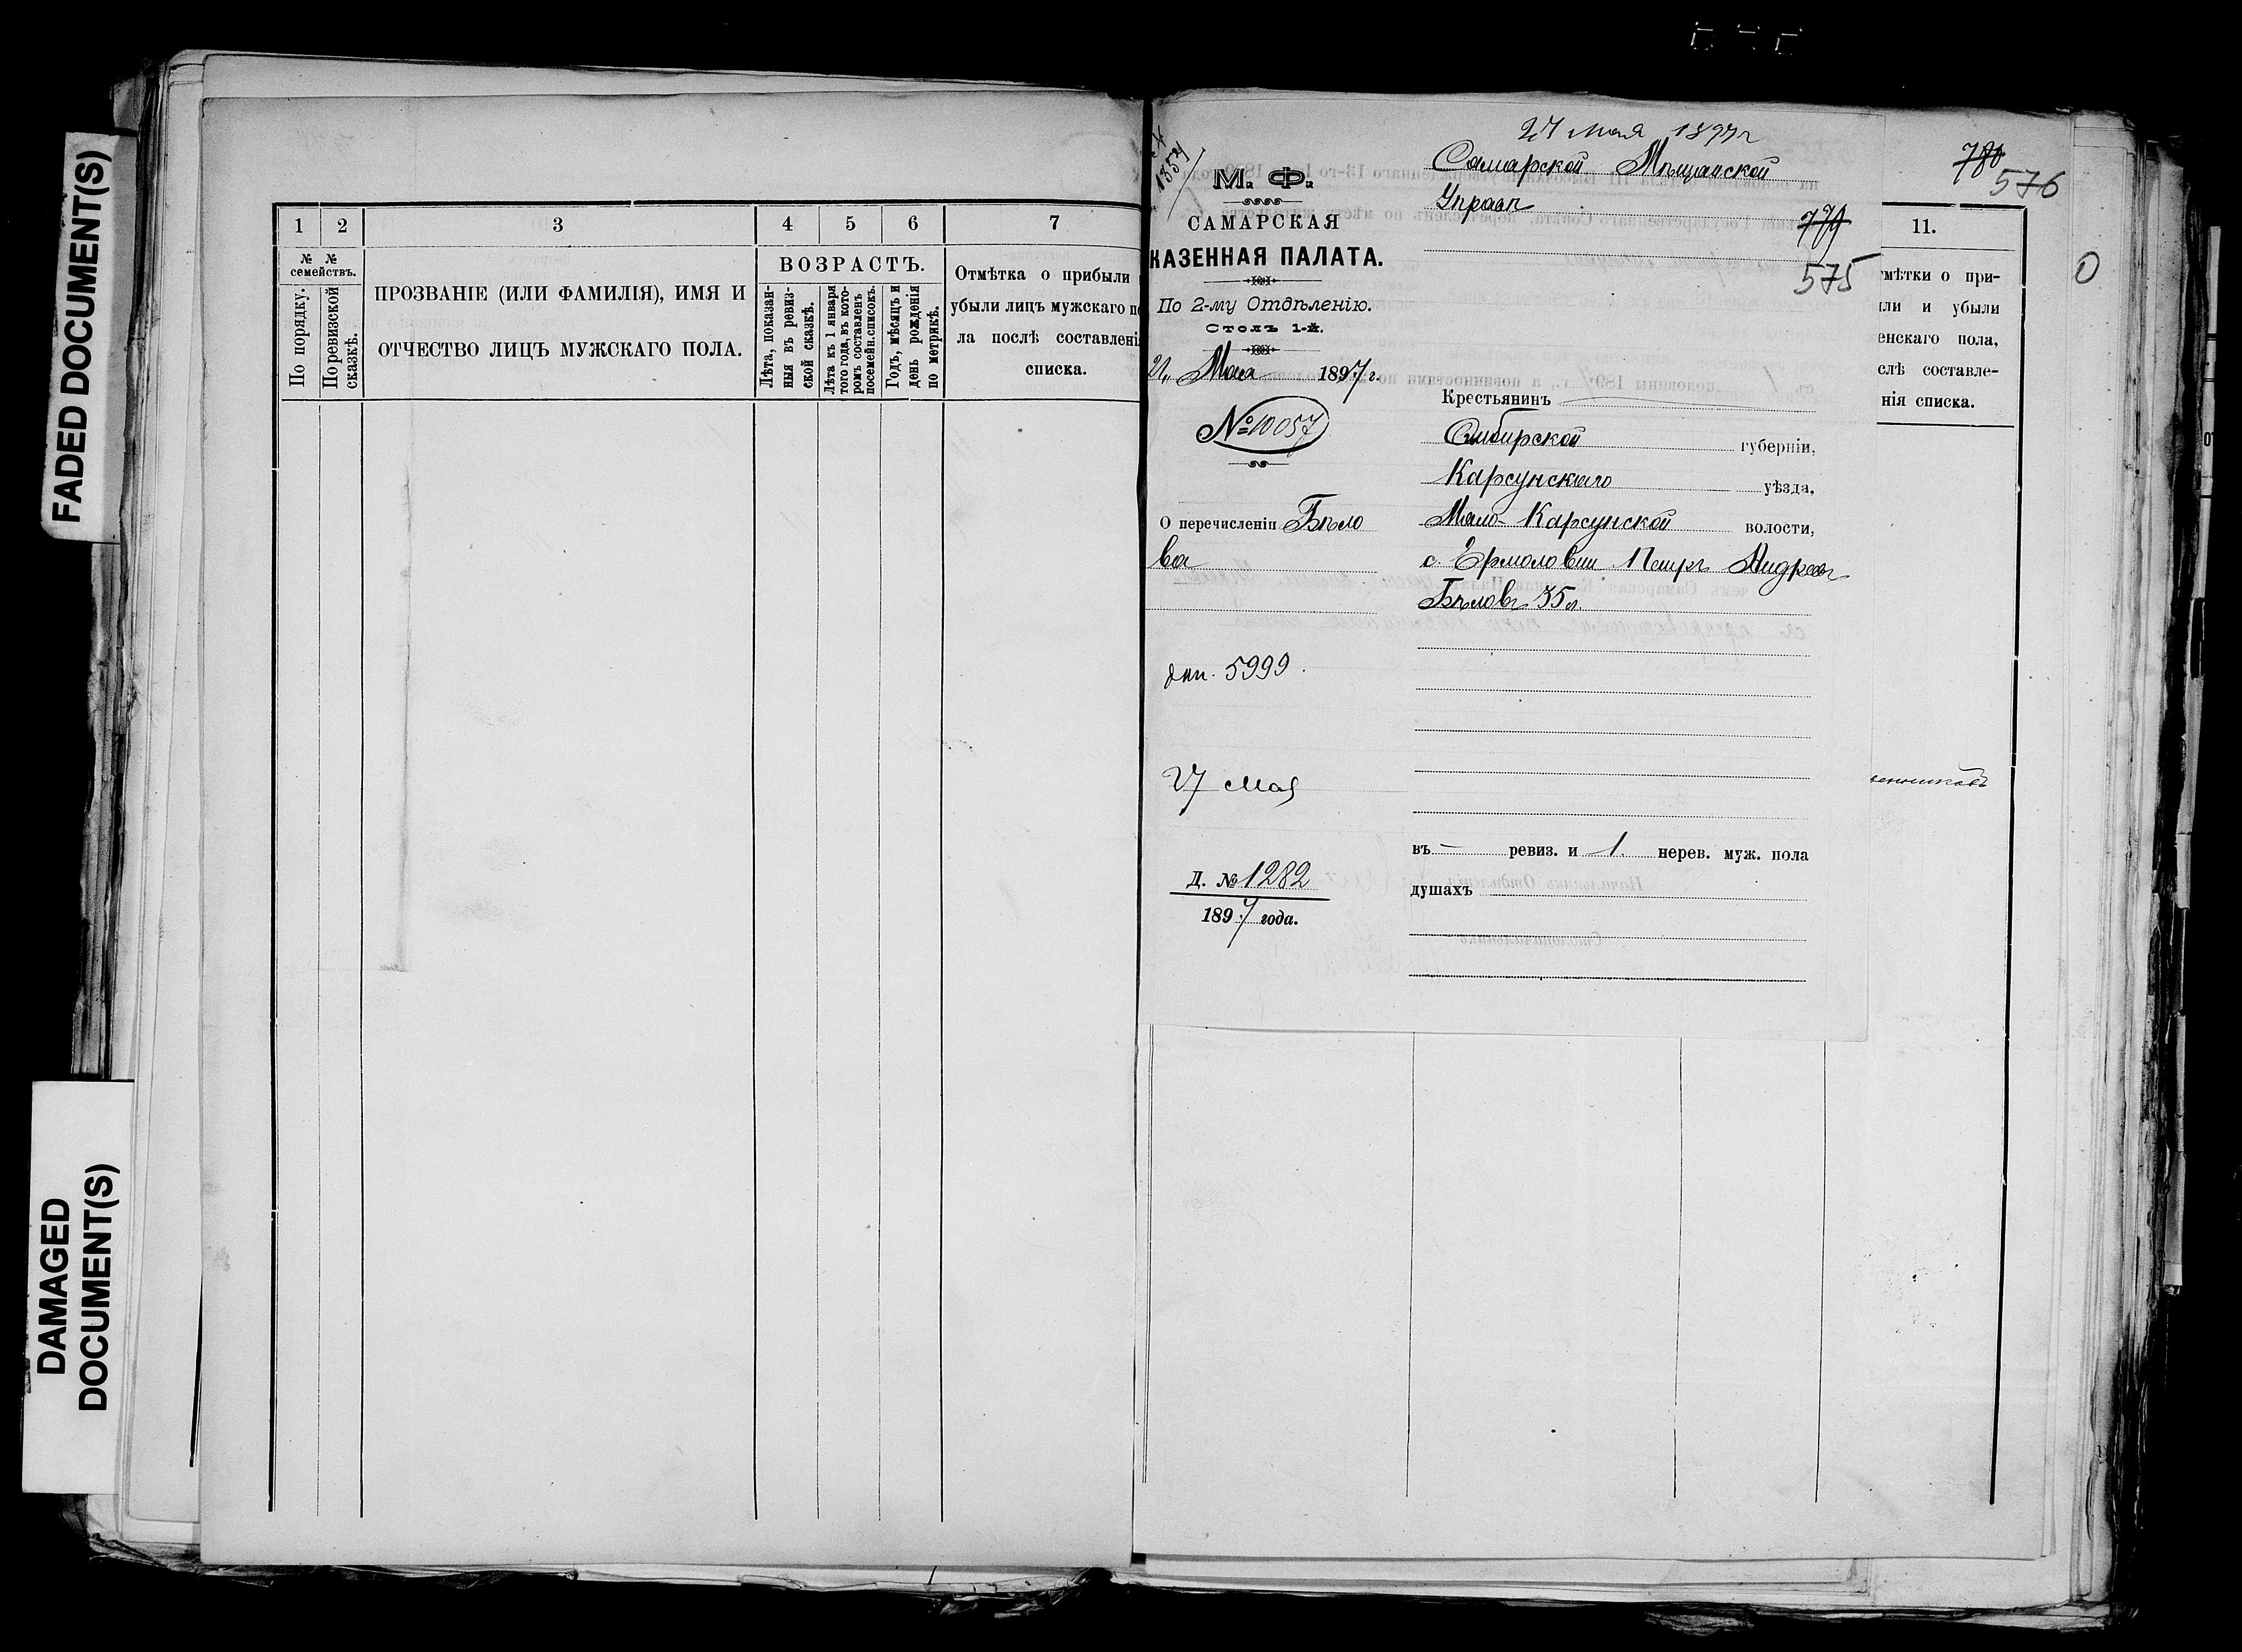 FADED DOCUMENT(S)
DAMAGED
DOCUMENT(S)
1 2 3 4 5 6 7
№ №
семействъ.
По порядку.
По ревизской
сказкѣ.
ПРОЗВАНІЕ (ИЛИ ФАМИЛІЯ), ИМЯ И
ОТЧЕСТВО ЛИЦЪ МУЖСКАГО ПОЛА.
ВОЗРАСТЪ.
Лѣта, показан-
ныя въ ревиз-
ской сказкѣ.
Лѣта къ 1 января
того года, въ кото-
ромъ составленъ
посемейн. списокъ.
Годъ, мѣсяцъ и
день рожденія
по метрикѣ.
Отмѣтка о прибыли
убыли лицъ мужскаго по
ла послѣ составлені
списка.
1354
М. Ф.
САМАРСКАЯ
КАЗЕННАЯ ПАЛАТА.
По 2-му Отдѣленію.
Столъ 1-й.
21 Мая 1897 г.
№ 10057
О перечисленіи Бѣло
ва
5999.
27 Мая
Д. № 1282
1897 года.
27 Мая 1897 г
Самарской Мѣщанской
Управѣ
779
575
Крестьянинъ
Симбирской губерніи,
Карсунскаго уѣзда,
Мало-Карсунской волости,
с. Ермоловки Петръ Андреевъ
Бѣловъ 35 л.
въ — ревиз. и 1. нерев. муж. пола
душахъ
780
576
11.
мѣтки о при-
ыли и убыли
енскаго пола,
слѣ составле-
нія списка.
0